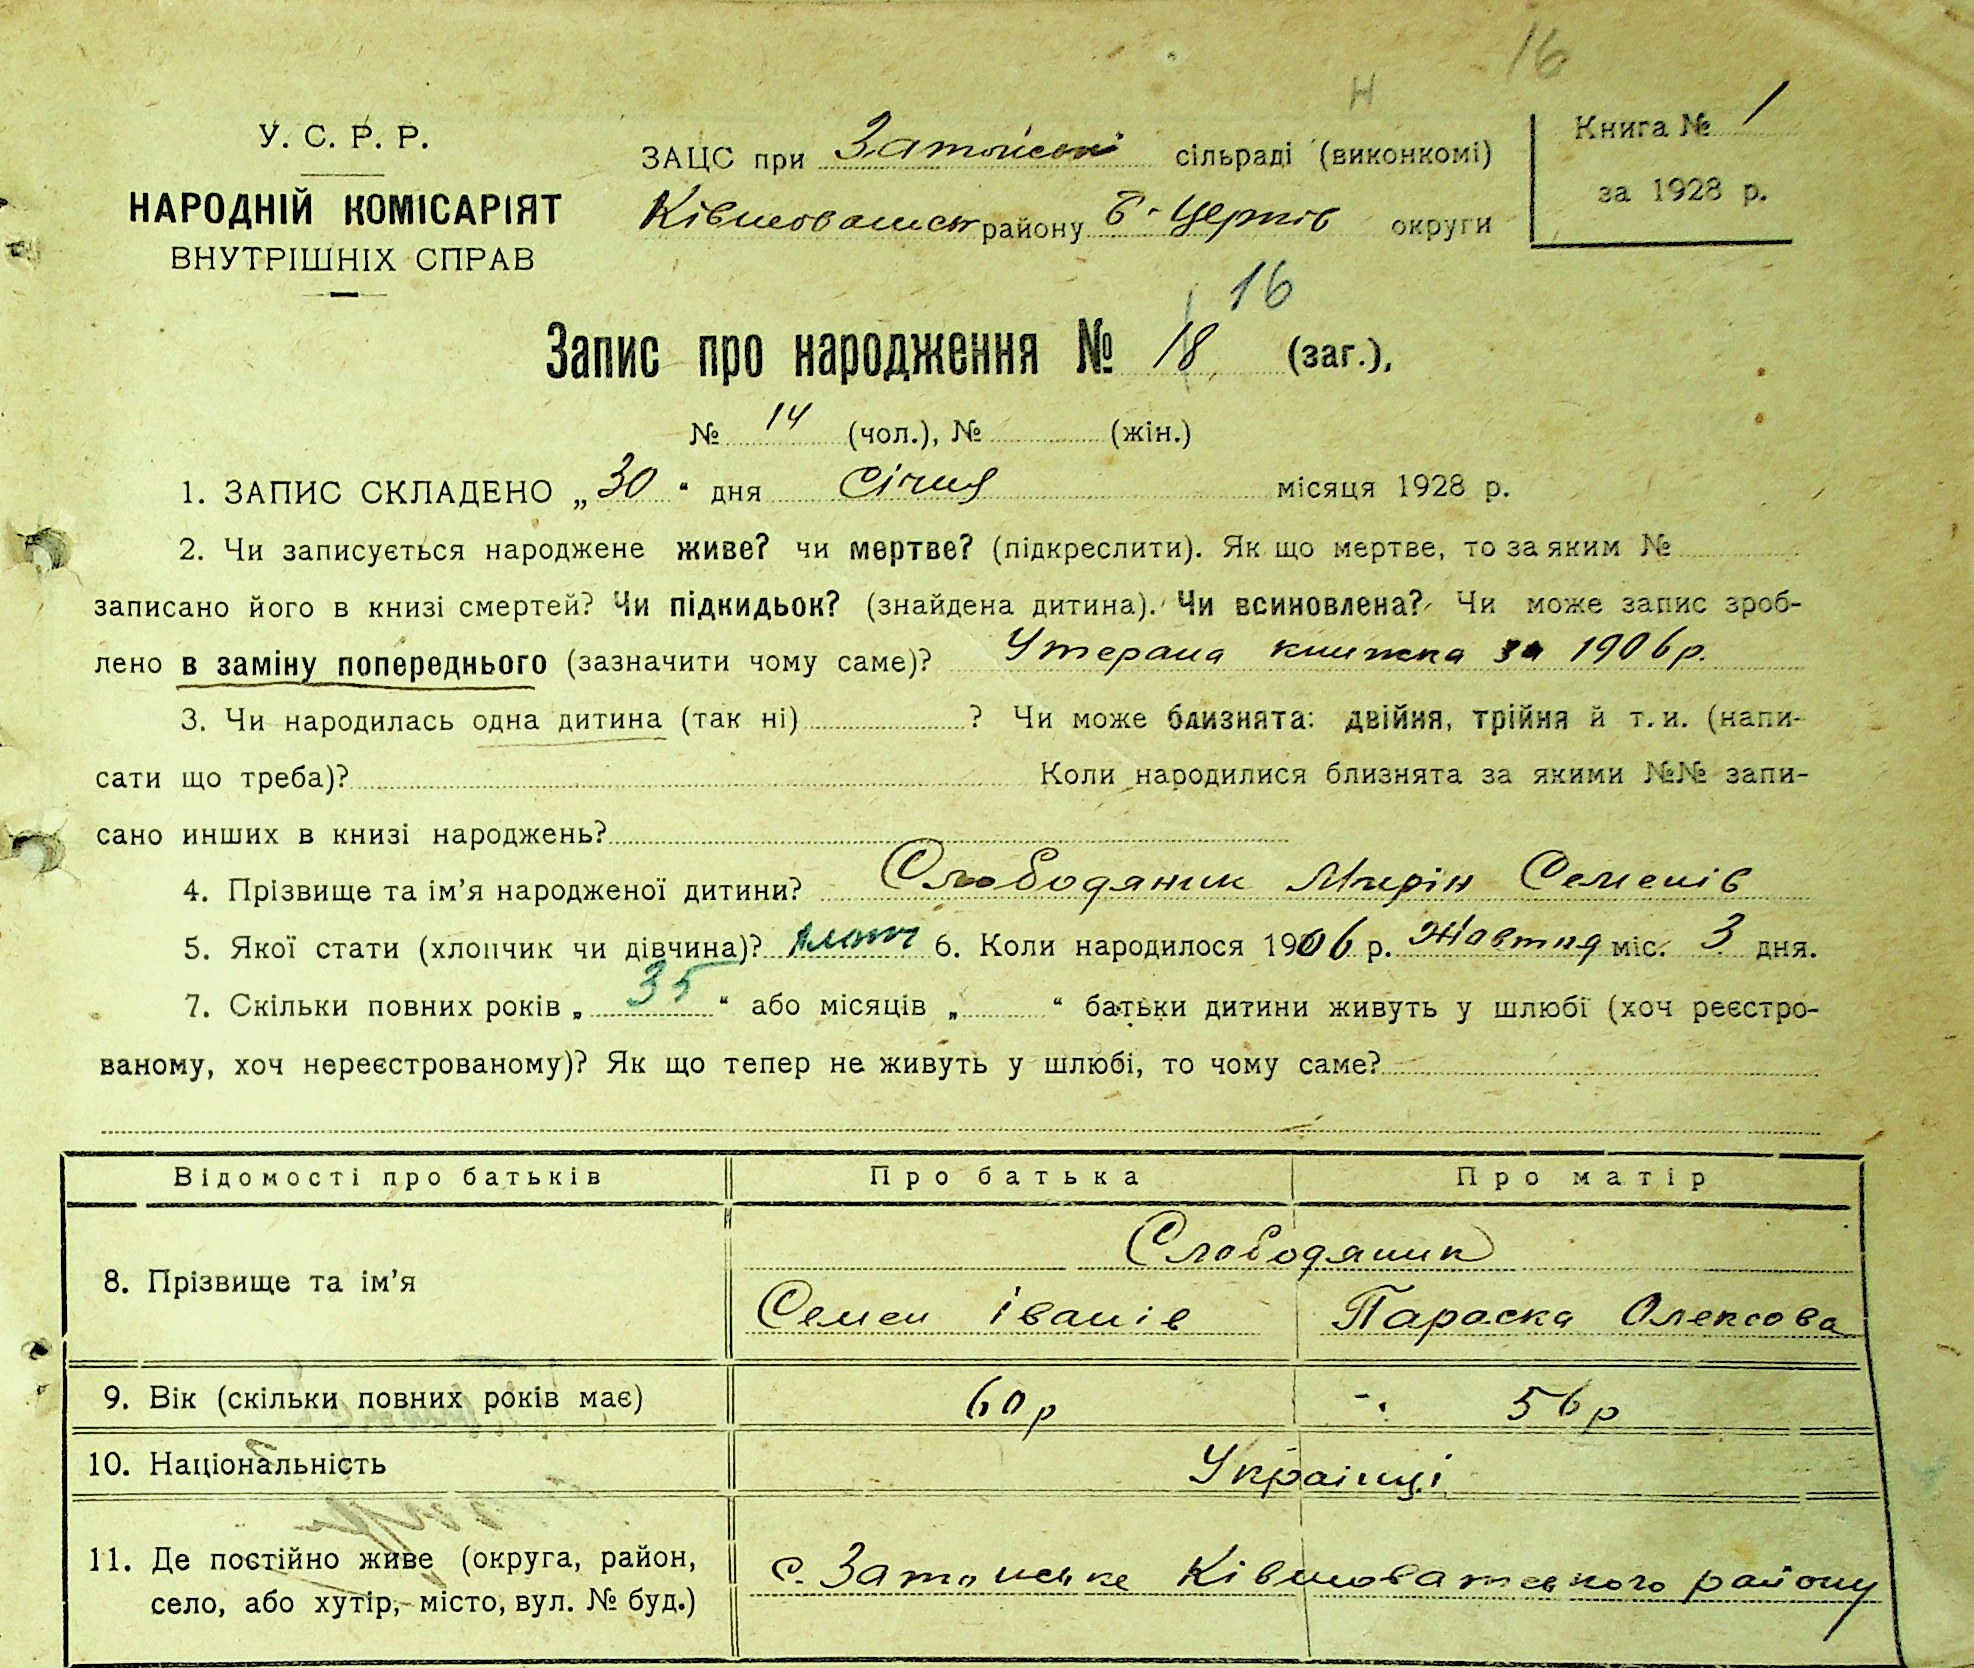 16
Н
У. С. Р. Р.
НАРОДНІЙ КОМІСАРІЯТ
ВНУТРІШНІХ СПРАВ
ЗАЦС при Затонські сільраді (виконкомі)
району Б-Церків округи
Книга № 1
за 1928 р.
16
Запис про народження № 18 (заг.),
№ 14 (чол.), № (жін.)
1. ЗАПИС СКЛАДЕНО „30“ дня Січня місяця 1928 р.
2. Чи записується народжене живе? чи мертве? (підкреслити). Як що мертве, то за яким №
записано його в книзі смертей? Чи підкидьок? (знайдена дитина). Чи всиновлена? Чи може запис зроб-
лено в заміну попереднього (зазначити чому саме)? Утерана книжка за 1906 р.
3. Чи народилась одна дитина (так ні) ? Чи може близнята: двійня, трійня й т. и. (напи-
сати що треба)? Коли народилися близнята за якими №№ запи-
сано инших в книзі народжень?
4. Прізвище та ім’я народженої дитини? Слободяник Мирін Семенів
5. Якої стати (хлопчик чи дівчина)? хлопч 6. Коли народилося 1906 р. Жовтня міс. 3 дня.
7. Скільки повних років „35“ або місяців „ “ батьки дитини живуть у шлюбі (хоч реєстро-
ваному, хоч нереєстрованому)? Як що тепер не живуть у шлюбі, то чому саме?
Відомості про батьків Про батька Про матір
8. Прізвище та ім’я Слободяник
Семен Іванів Параска Олексова
9. Вік (скільки повних років має) 60 р 56 р
10. Національність Українці
11. Де постійно живе (округа, район,
село, або хутір, місто, вул. № буд.) с. Затонське Ківшоватського району